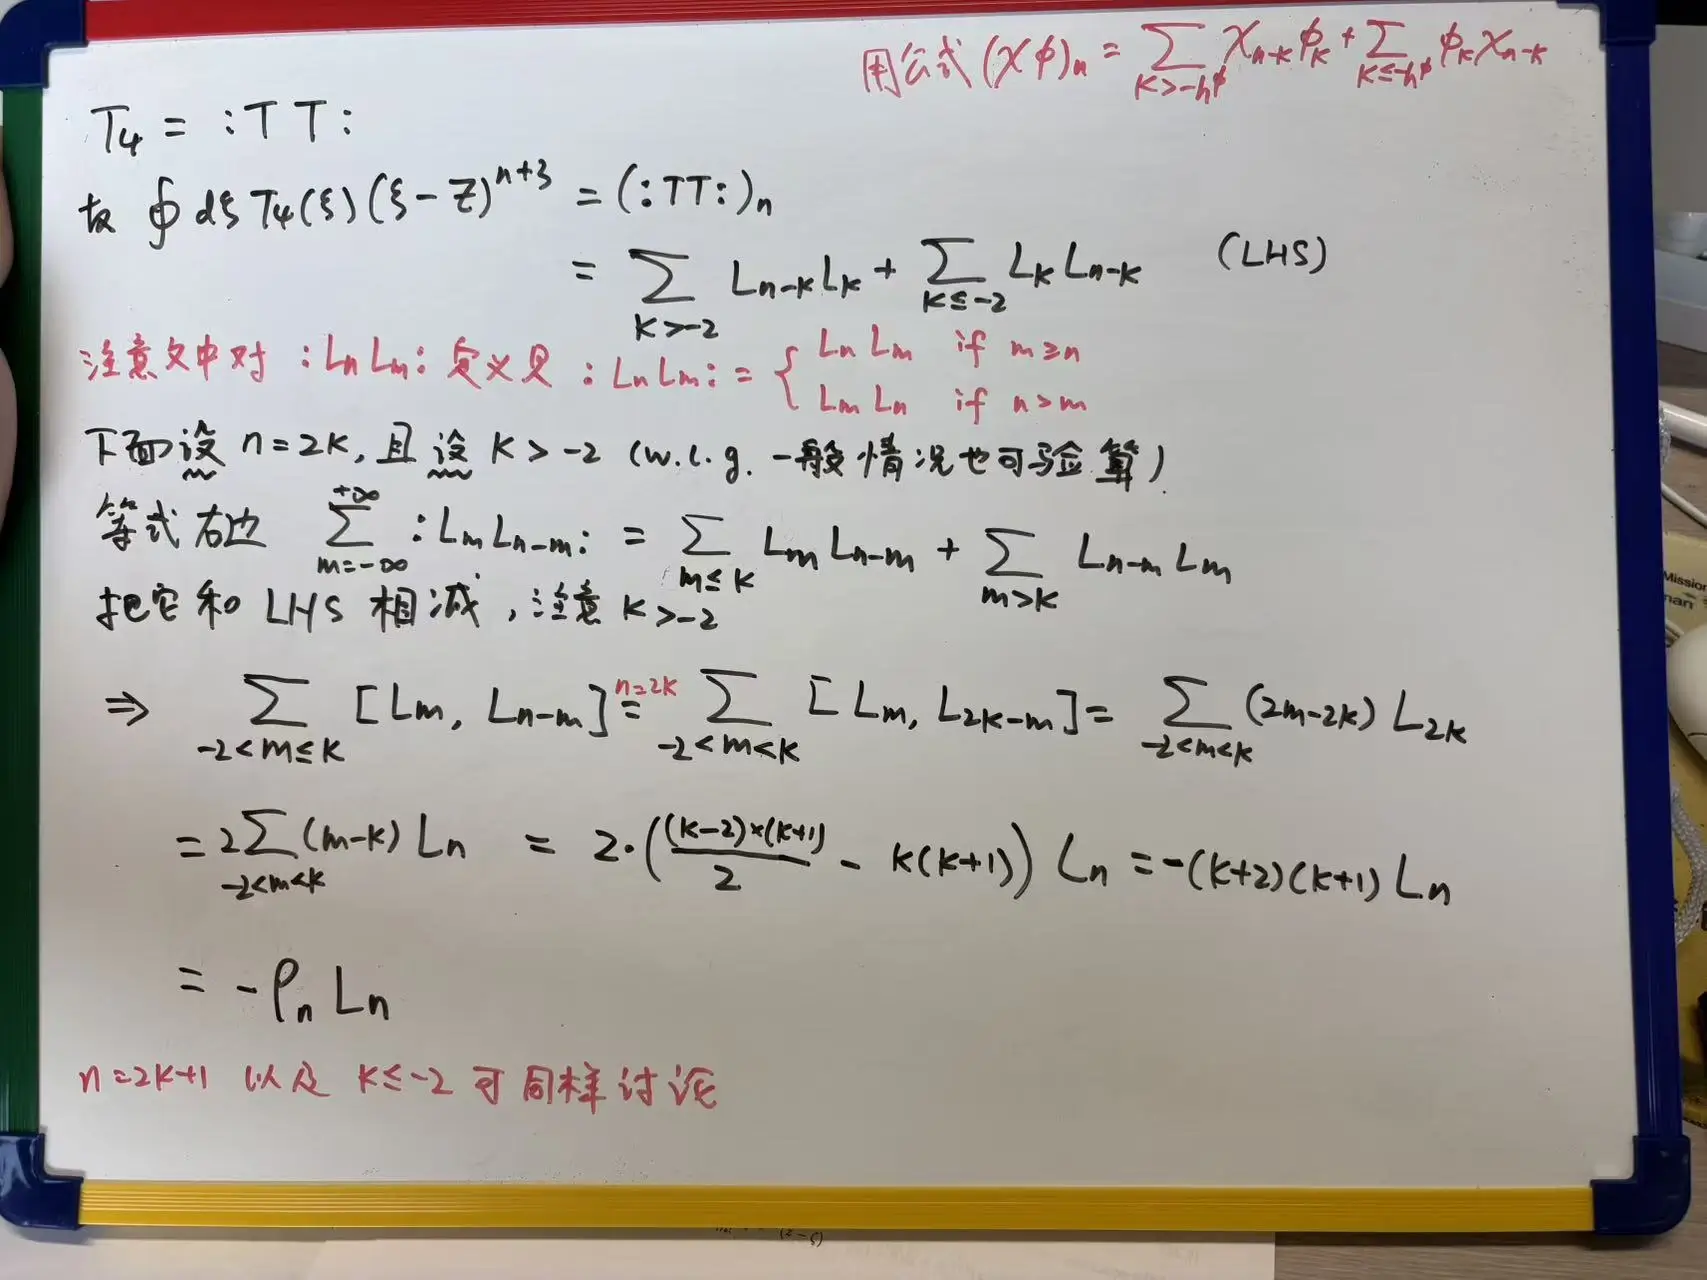 用公式 (χφ)_n = Σ_{k>-h^φ} χ_{n-k} φ_k + Σ_{k≤-h^φ} φ_k χ_{n-k}
T₄ = :TT:
故 ∮dξ T₄(ξ)(ξ-z)^{n+3} = (:TT:)_n
= Σ_{k>-2} L_{n-k} L_k + Σ_{k≤-2} L_k L_{n-k} (LHS)
注意文中对 :L_n L_m: 定义是 :L_n L_m: = { L_n L_m if m≥n
L_m L_n if n>m
下面设 n=2k, 且设 k>-2 (w.l.g. 一般情况也可验算)
等式右边 Σ_{m=-∞}^{+∞} :L_m L_{n-m}: = Σ_{m≤k} L_m L_{n-m} + Σ_{m>k} L_{n-m} L_m
把它和 LHS 相减, 注意 k>-2
⇒ Σ_{-2<m≤k} [L_m, L_{n-m}] =^{n=2k} Σ_{-2<m<k} [L_m, L_{2k-m}] = Σ_{-2<m<k} (2m-2k) L_{2k}
= 2Σ_{-2<m<k} (m-k) L_n = 2·((k-2)×(k+1)/2 - k(k+1)) L_n = -(k+2)(k+1) L_n
= -ρ_n L_n
n=2k+1 以及 k≤-2 可同样讨论
Mission
(z-ξ)